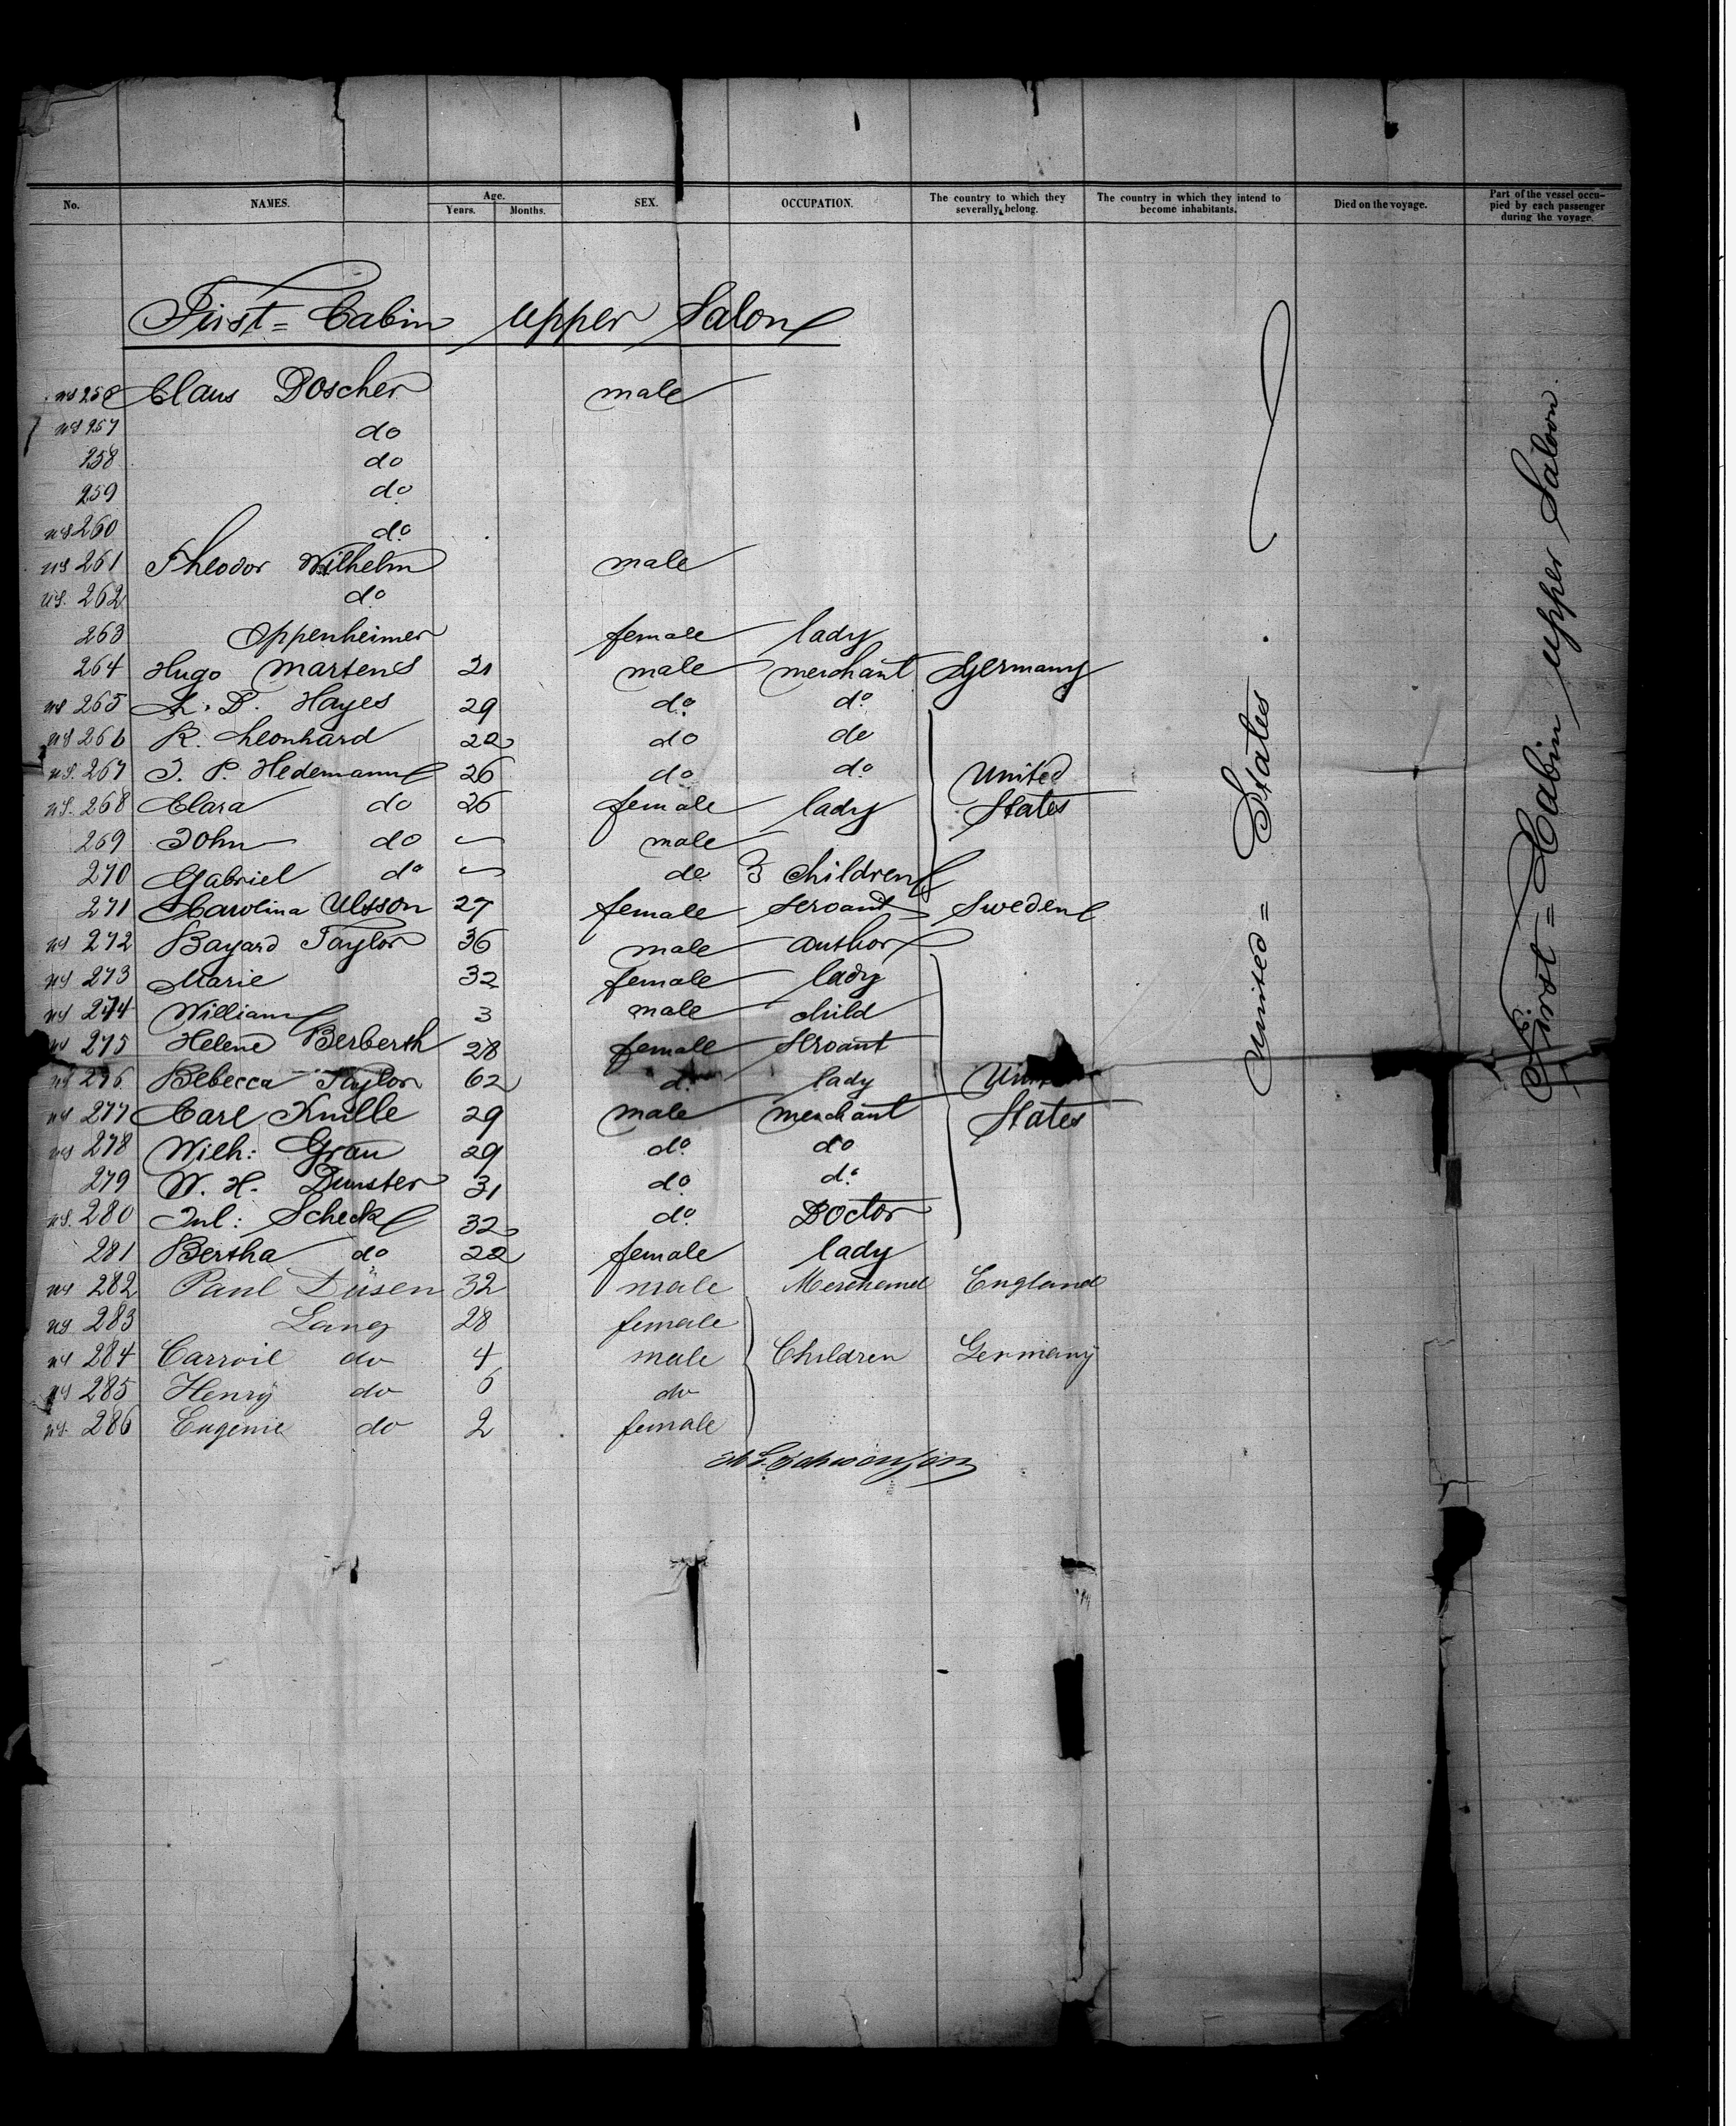 No. NAMES. Age. Years. Months. SEX. OCCUPATION. The country to which they severally belong. The country in which they intend to become inhabitants. Died on the voyage. Part of the vessel occupied by each passenger during the voyage.
First = Cabin upper Salon
Claus Doscher male
us 257 do
258 do
259 do
us 260 do
us 261 Theodor Wilhelm male
us. 262 do
263 Oppenheimer female lady
264 Hugo Martens 21 male merchant Germany
us 265 D. Hayes 29 do do
us 266 R. Leonhard 22 do do
us. 267 J. P. Hedemann 26 do do United
us. 268 Clara do 26 female lady States
269 John do male
270 Gabriel do do children
271 Carolina Ulsson 27 female servant Sweden
us 272 Bayard Taylor 36 male author
us 273 Marie 32 female lady
us 274 William 3 male child
us 275 Helene Berberth 28 female servant
us 276 Bebecca Taylor 62 do lady
us 277 Carl Knille 29 male merchant States
us 278 Wilh: Grau 29 do do
279 W. H. Dunster 31 do do
us. 280 Jul: Scheck 32 do Doctor
281 Bertha do 22 female lady
us 282 Paul Düsen 32 male England
us. 283 Lang 28 female
us 284 do 4 male Children Germany
us 285 Henry do 6 do
us. 286 Eugenie do 2 female
United = States
First = Cabin upper Saloon.